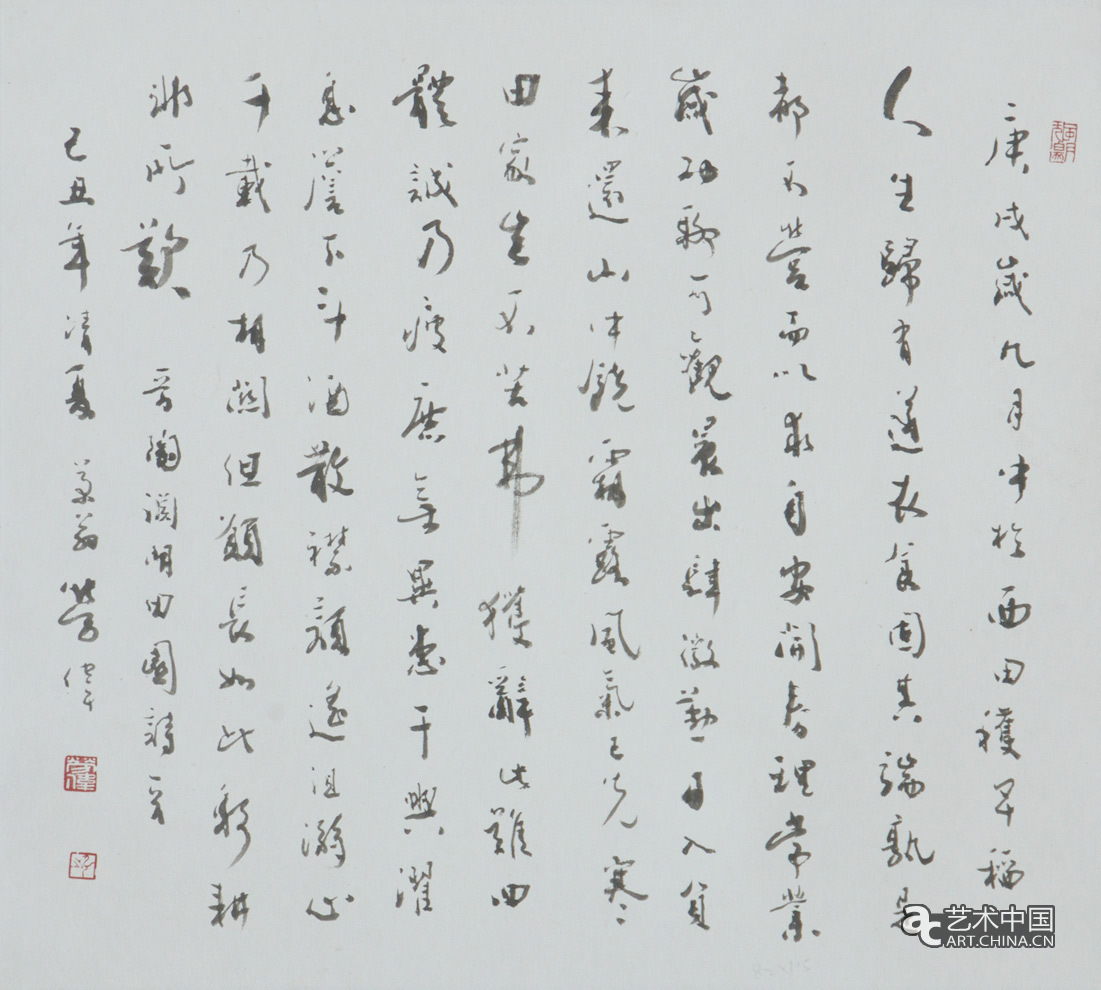 庚戌歲九月中於西田穫早稻
人生歸有道衣食固其端孰是
都不營而以求自安開春理常業
歲功聊可觀晨出肆微勤日入負
耒還山中饒霜露風氣已先寒
田家豈不苦弗獲辭此難四
體誠乃疲庶無異患干盥濯
息簷下斗酒散襟顏遙沮溺心
千載乃相關但願長如此躬耕
非所歎 晉陶淵明田園詩
己丑年清夏 翁 勞偉
艺术中国
ART.CHINA.CN